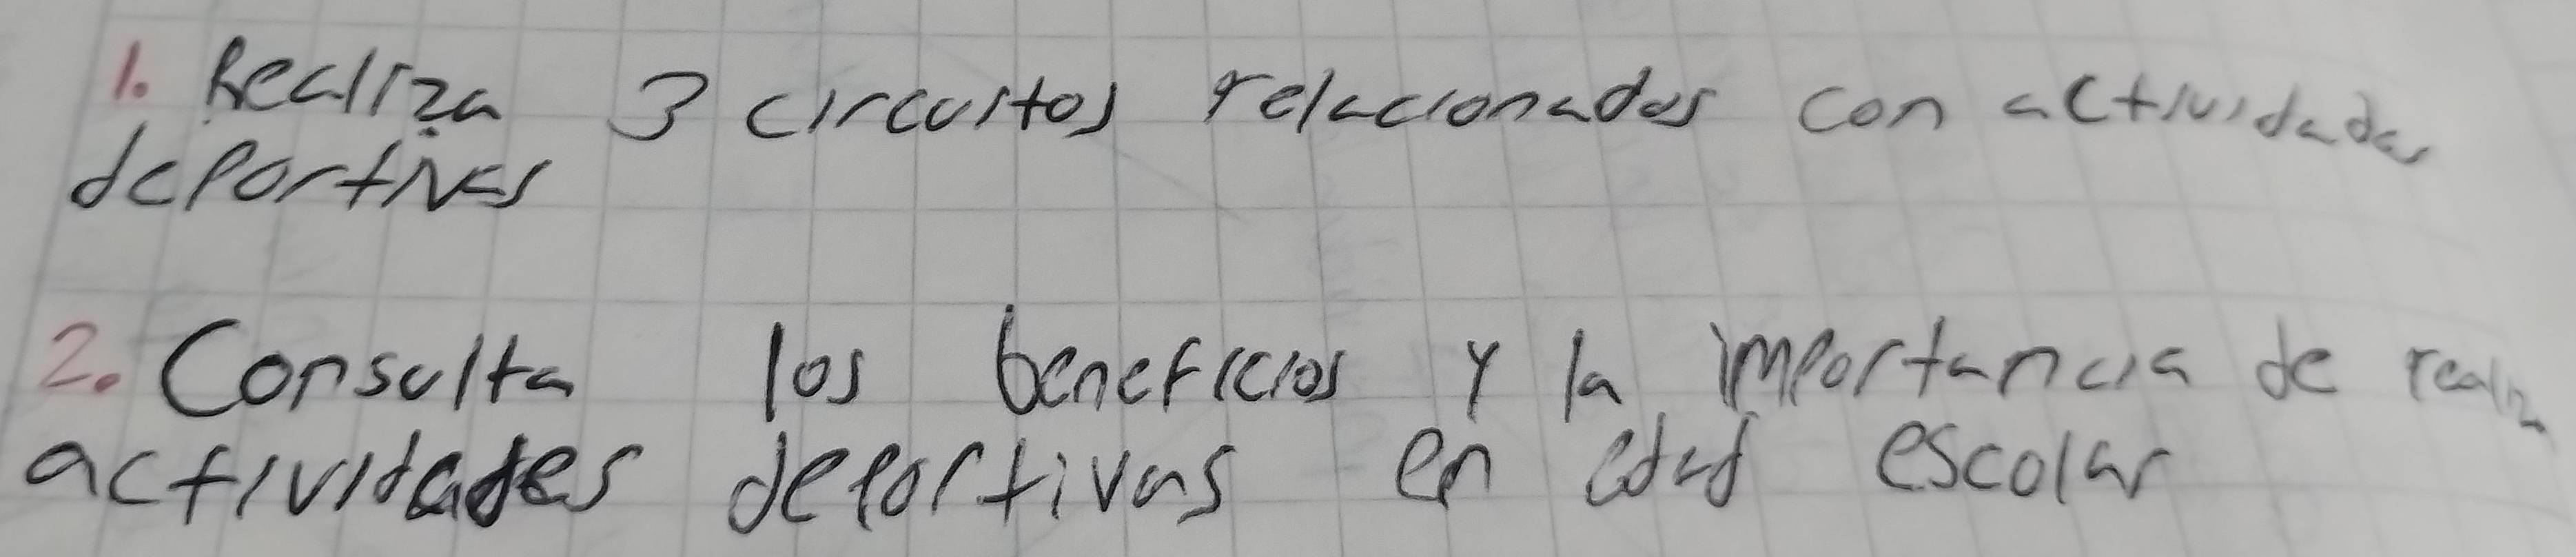 1. Realiza 3 circuitos relacionados con actividades
deportivas
2. Consulta los beneficios y la importancia de realiza
actividades deportivas en edad escolar